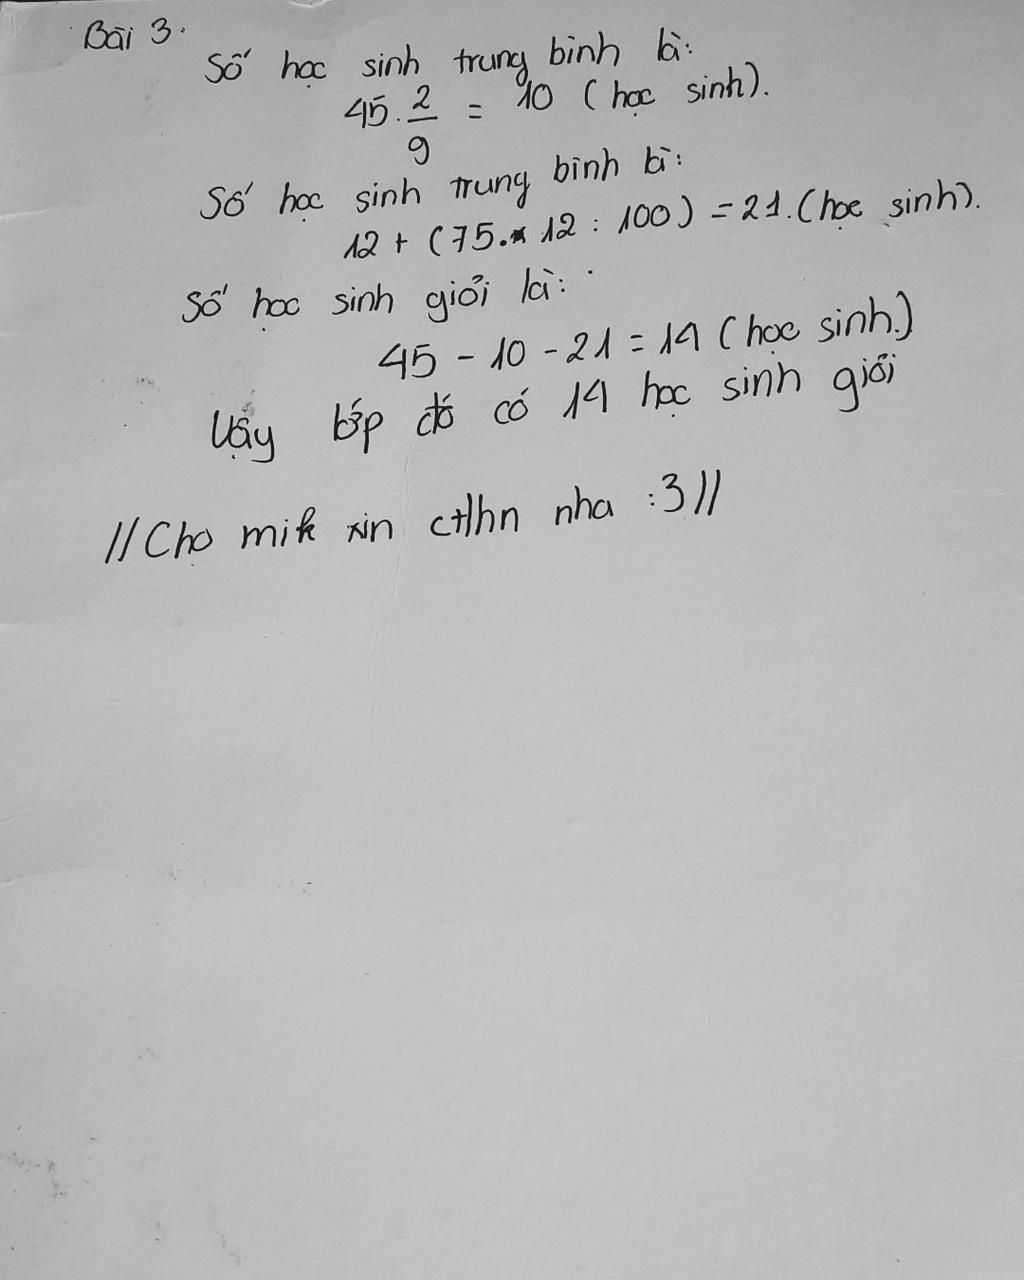 Bài 3.
Số học sinh trung bình là:
45. 2/9 = 10 (học sinh).
Số học sinh trung bình là:
12 + (75. 12 : 100) = 21. (học sinh).
Số học sinh giỏi là:
45 - 10 - 21 = 14 (học sinh.)
Vậy lớp đó có 14 học sinh giỏi
//Cho mik xin ctlhn nha :3//